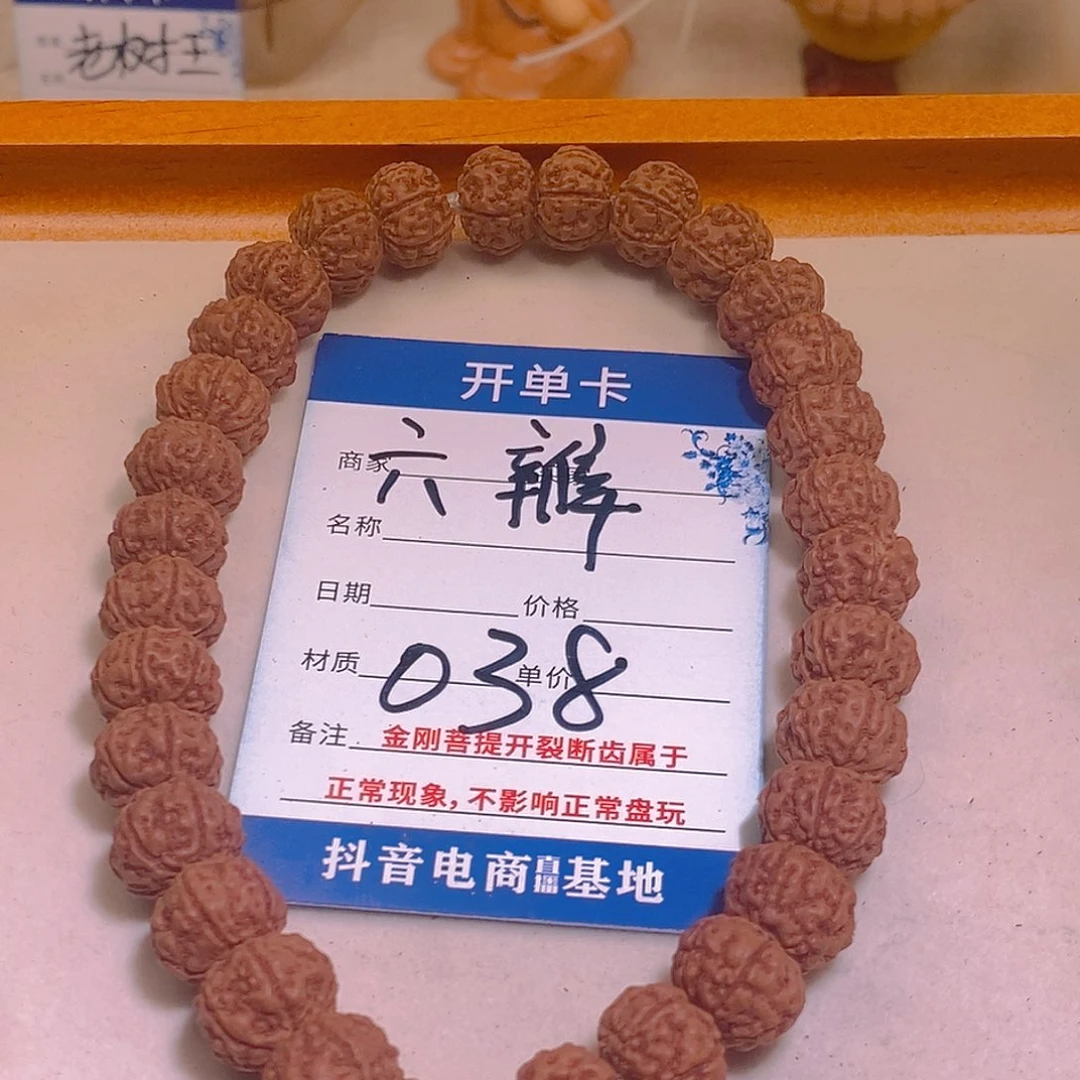 老树王
开单卡
商家 六瓣
名称
日期 价格
材质 038 单价
备注 金刚菩提开裂断齿属于
正常现象,不影响正常盘玩
抖音电商直播基地